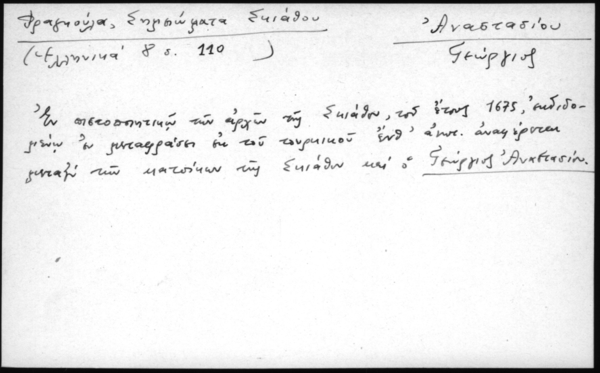 Φραγκούλα, Σημειώματα Σκιάθου
(Ἑλληνικά 8 σ. 110 )
Ἀναστασίου
Γεώργιος
Ἐν πιστοποιητικῷ τῶν ἀρχῶν τῆς Σκιάθου, τοῦ ἔτους 1675, ἐκδιδο-
μένῳ ἐν μεταφράσει ἐκ τοῦ τουρκικοῦ ἔνθ' ἀνωτ. ἀναφέρεται
μεταξὺ τῶν κατοίκων τῆς Σκιάθου καὶ ὁ Γεώργιος Ἀναστασίου.